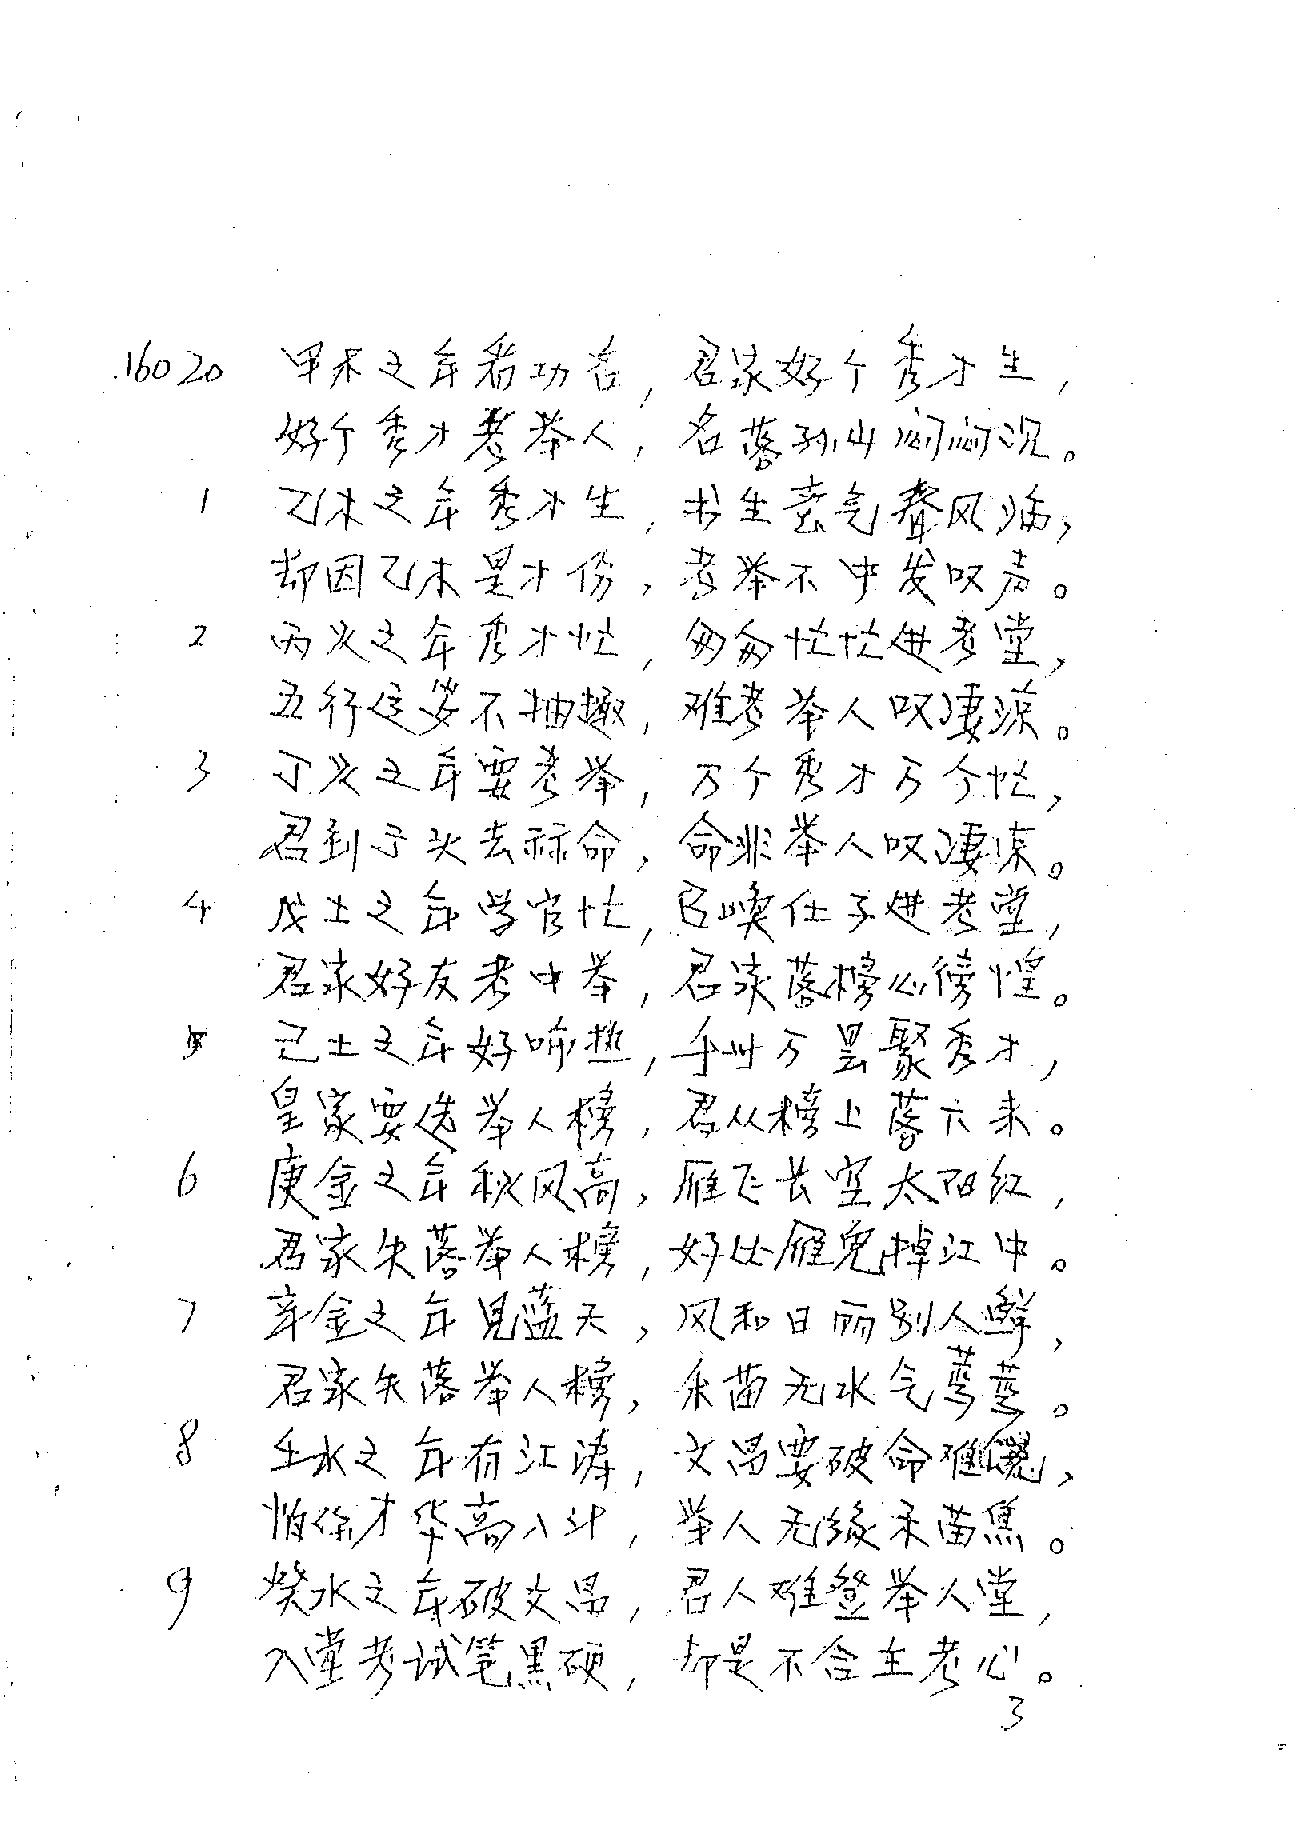 16020 甲木之年看功名，君家好个秀才生，
好个秀才考举人，名落孙山闷闷沉。
1 乙木之年秀才生，书生意气春风满，
却因乙木是才份，考举不中发叹声。
2 丙火之年秀才忙，匆匆忙忙进考堂，
五行定岁不抽趣，难考举人叹凄凉。
3 丁火之年要考举，万个秀才万个忙，
君到子头去称命，命非举人叹凄凉。
4 戊土之年学官忙，仕子进考堂，
君家好友考中举，君家落榜心徬惶。
5 己土之年好响热，千州万县聚秀才，
皇家要选举人榜，君从榜上落下来。
6 庚金之年秋风高，雁飞长空太阳红，
君家失落举人榜，好比雁儿掉江中。
7 辛金之年见蓝天，风和日丽别人鲜，
君家失落举人榜，禾苗无水气蔫蔫。
8 壬水之年有江涛，文昌要破命难，
怕你才华高八斗，举人无缘禾苗焦。
9 癸水之年破文昌，君人难登举人堂，
入堂考试笔黑硬，却是不合主考心。
3